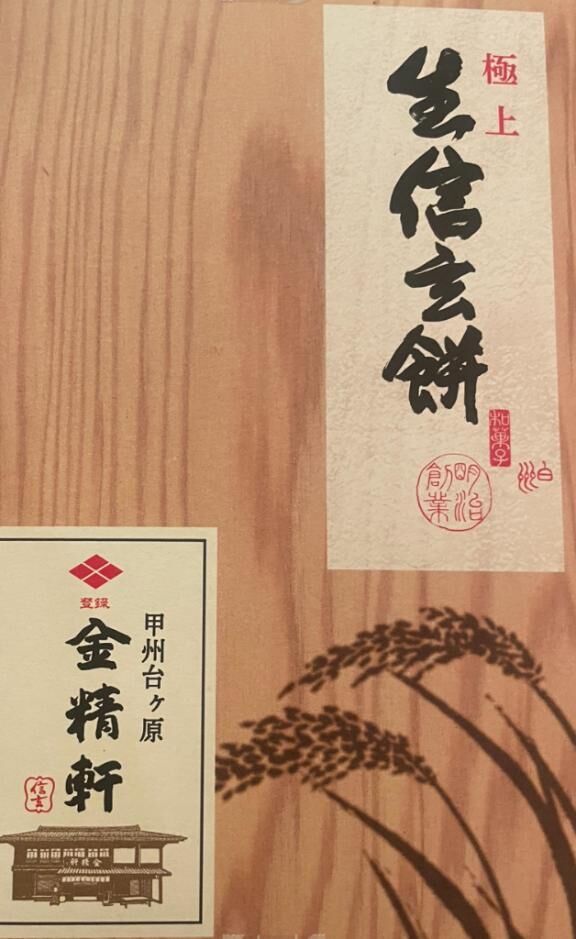 極上
生信玄餅
和菓子
明治
創業
登録
甲州台ヶ原
金精軒
信玄
金精軒